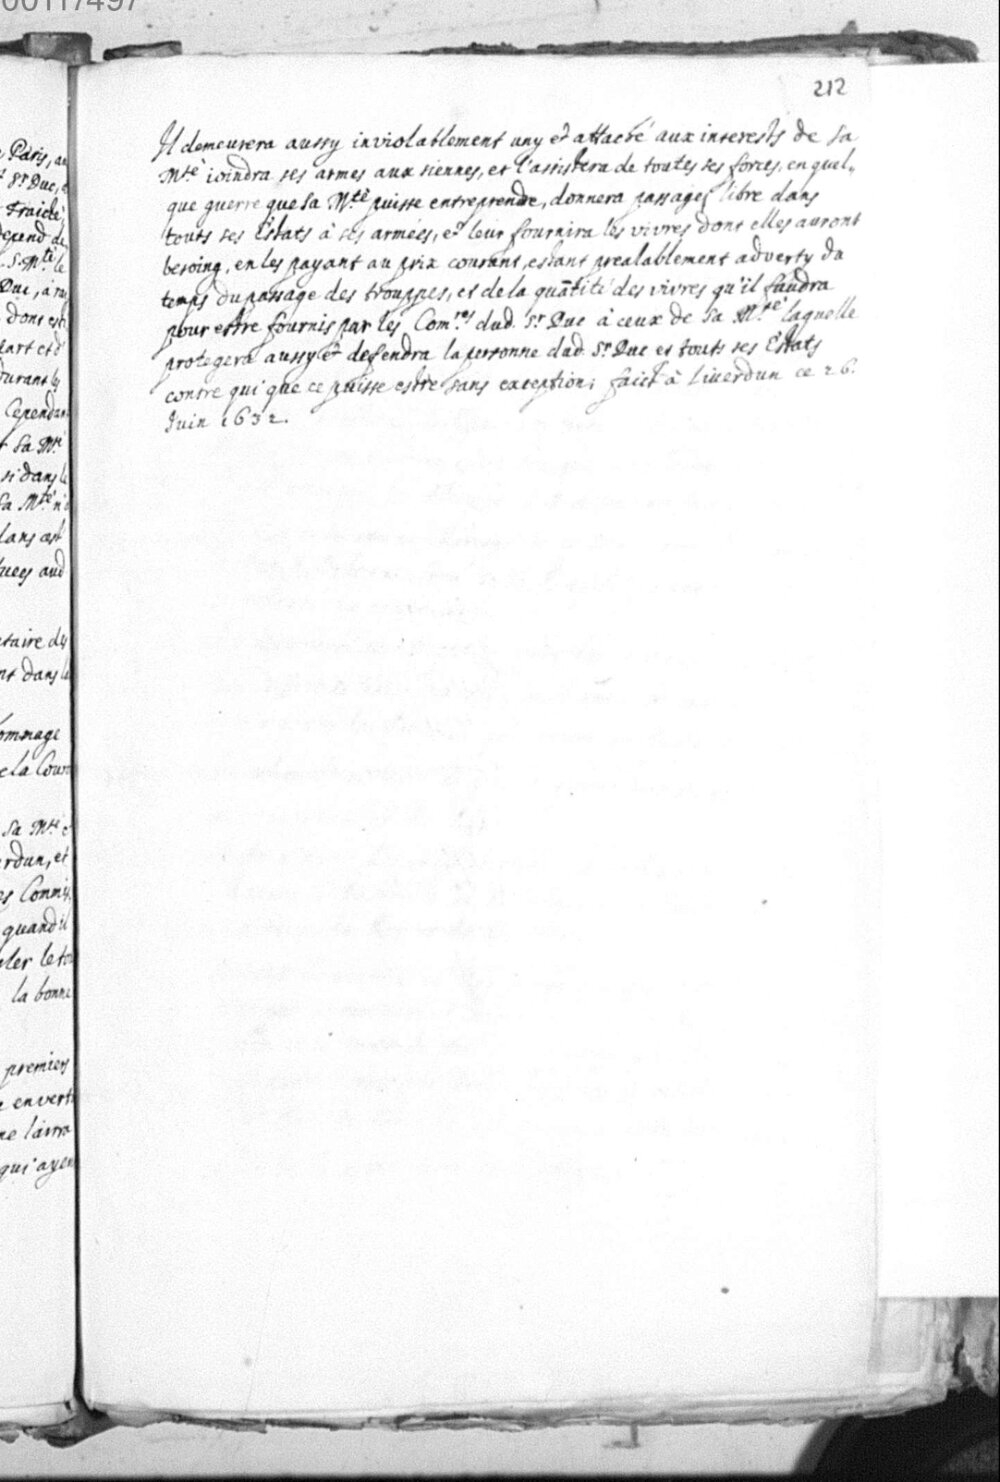 00117497
212
Il demeurera aussy inviolablement uny et attaché aux interests de Sa
M.té ioindra ses armes aux siennes, et l'assistera de toutes ses forces, en quel-
que guerre que Sa M.té puisse entreprendre, donnera passage libre dans
touts ses Estats à ses armées, et leur fournira les vivres dont elles auront
besoing, en les payant au prix courant, estant prealablement adverty du
temps du passage des trouppes, et de la quãtité des vivres qu'il faudra
pour estre fournis par les Com.res dud. Sr Duc à ceux de Sa M.té laquelle
protegera aussy et defendra la personne dud. Sr Duc et touts ses Estats
contre qui que ce puisse estre sans exception; faict à Liverdun ce 26.
Juin 1632.
Paris, au
Sr Duc,
Traicté
depend de
S. M.té le
Duc, à
dont est
part et d'
durant
Cependan
Sa M.té
si dans le
Sa M.té n'
dans cest
uees aud
taire du
nt dans la
ommage
e la Cour
Sa M.té
rdun, et
es Commis
quand il
ler le to
la bonne
premiers
en vert
ne lairra
qui ayen